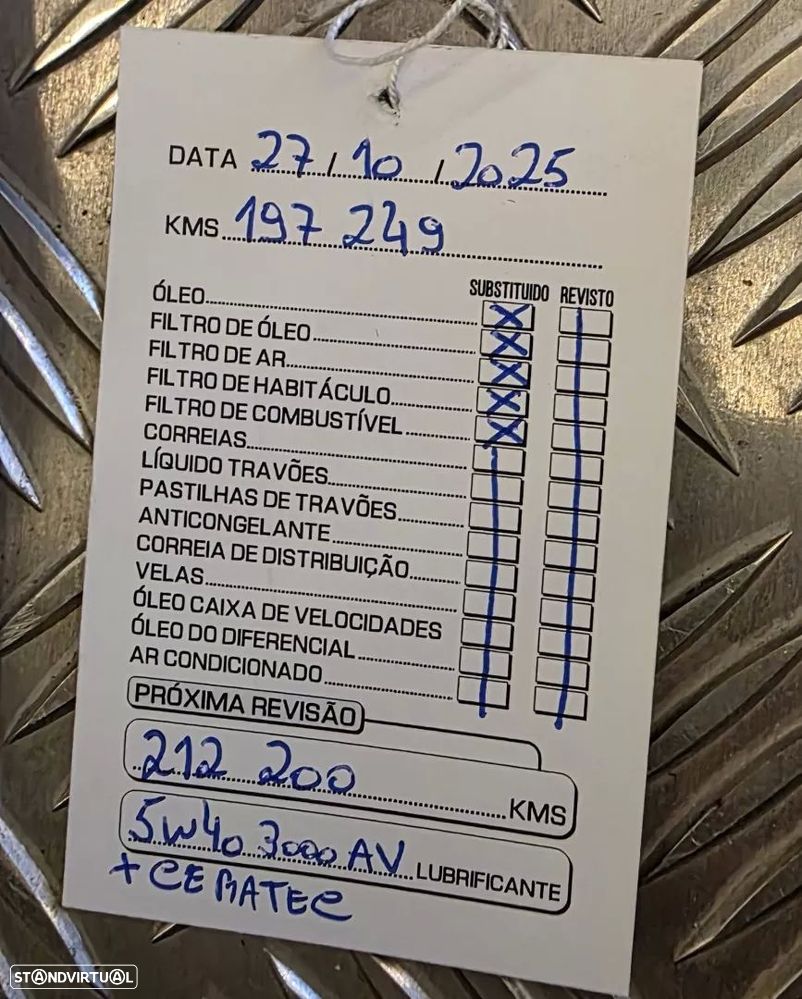 DATA 27 / 10 / 2025
KMS 197 249
SUBSTITUIDO REVISTO
ÓLEO
FILTRO DE ÓLEO
FILTRO DE AR
FILTRO DE HABITÁCULO
FILTRO DE COMBUSTÍVEL
CORREIAS
LÍQUIDO TRAVÕES
PASTILHAS DE TRAVÕES
ANTICONGELANTE
CORREIA DE DISTRIBUIÇÃO
VELAS
ÓLEO CAIXA DE VELOCIDADES
ÓLEO DO DIFERENCIAL
AR CONDICIONADO
PRÓXIMA REVISÃO
212 200 KMS
5W40 3000 AV LUBRIFICANTE
+ CERATEC
STANDVIRTUAL